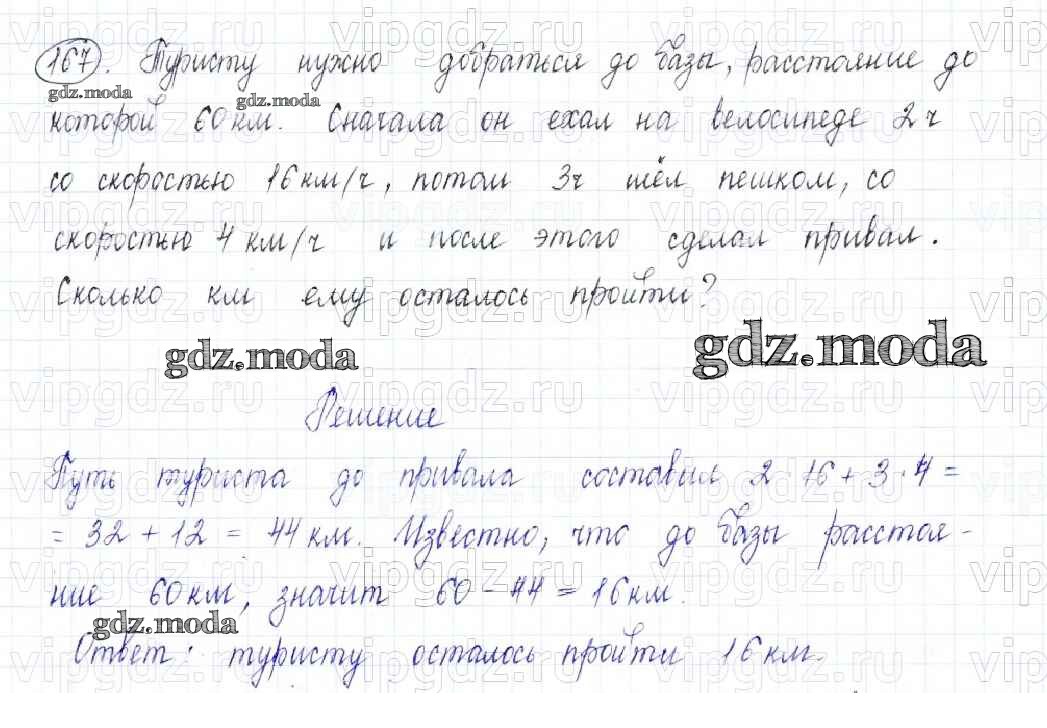 167. Туристу нужно добраться до базы, расстояние до
gdz.moda gdz.moda
которой 60 км. Сначала он ехал на велосипеде 2 ч
со скоростью 16 км/ч, потом 3ч шёл пешком, со
скоростью 4 км/ч и после этого сделал привал.
Сколько км ему осталось пройти?
gdz.moda gdz.moda
Решение
Путь туриста до привала составил 2 · 16 + 3 · 4 =
= 32 + 12 = 44 км. Известно, что до базы расстоя-
ние 60 км, значит 60 - 44 = 16 км.
gdz.moda
Ответ: туристу осталось пройти 16 км.
vipgdz.ru